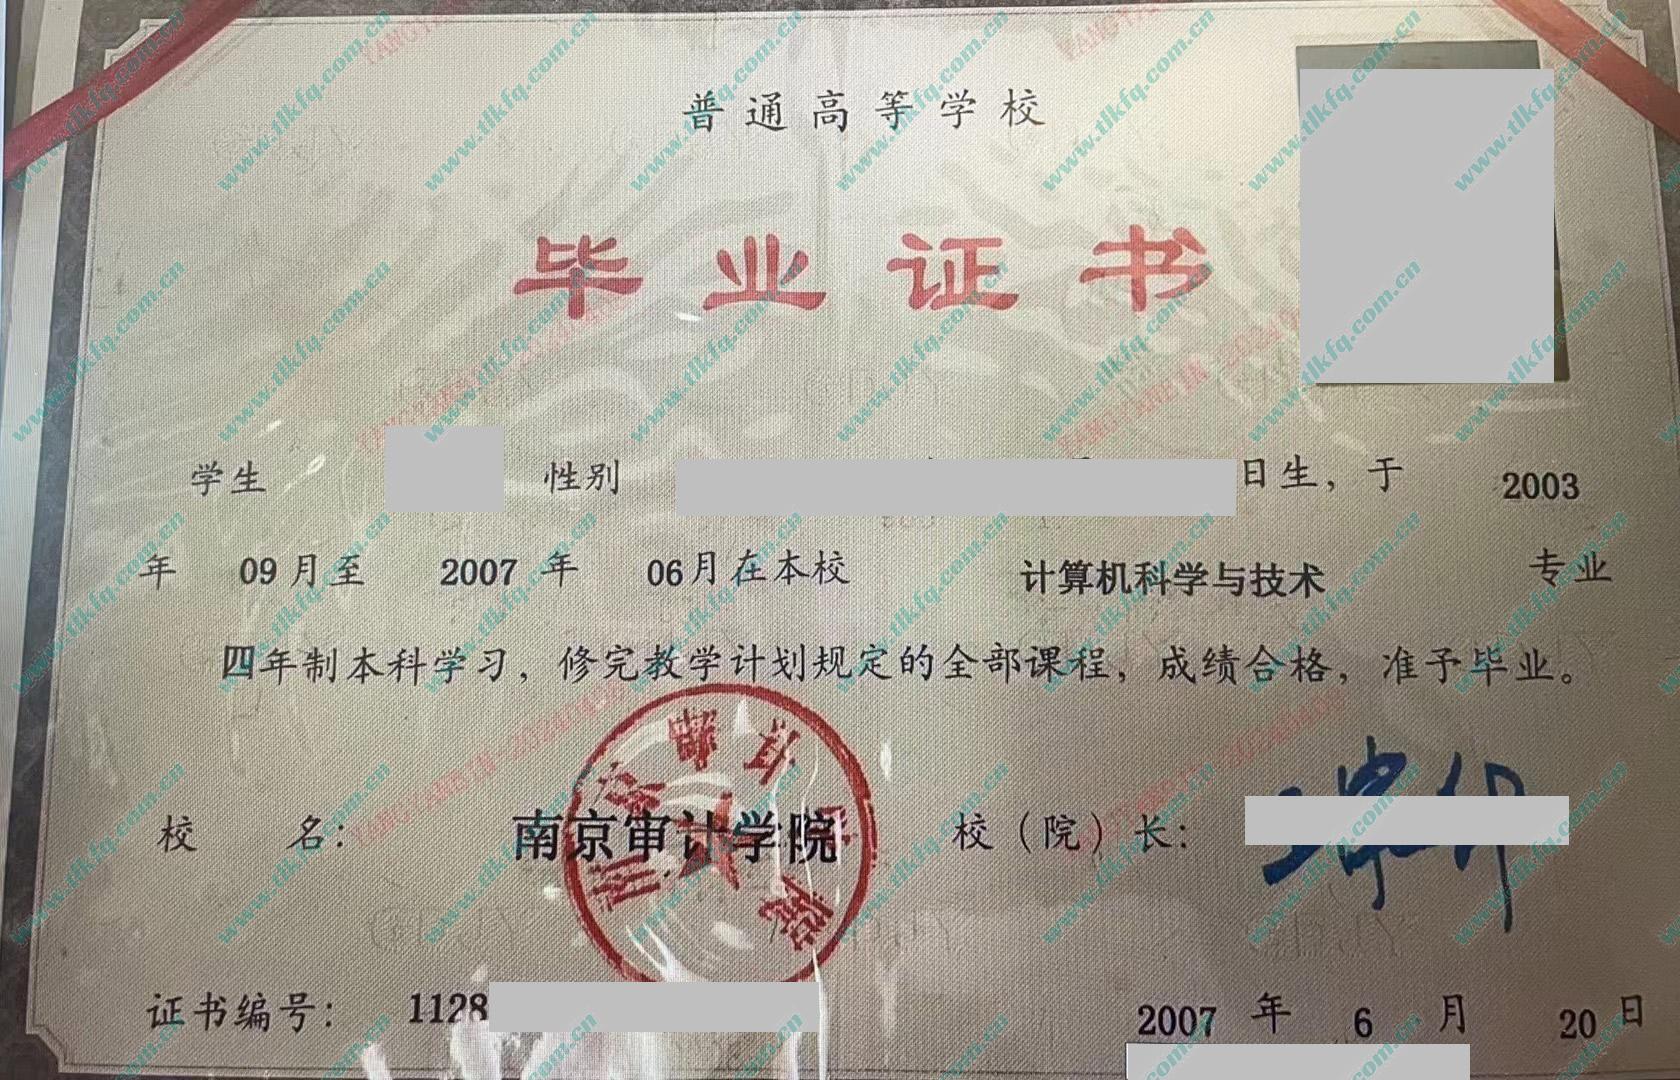 普通高等学校
毕业证书
学生 性别 日生，于 2003
年 09月至 2007 年 06月在本校 计算机科学与技术 专业
四年制本科学习，修完教学计划规定的全部课程，成绩合格，准予毕业。
校 名： 南京审计学院 校（院）长：
证书编号： 1128
2007 年 6 月 20 日
www.tlkfq.com.cn